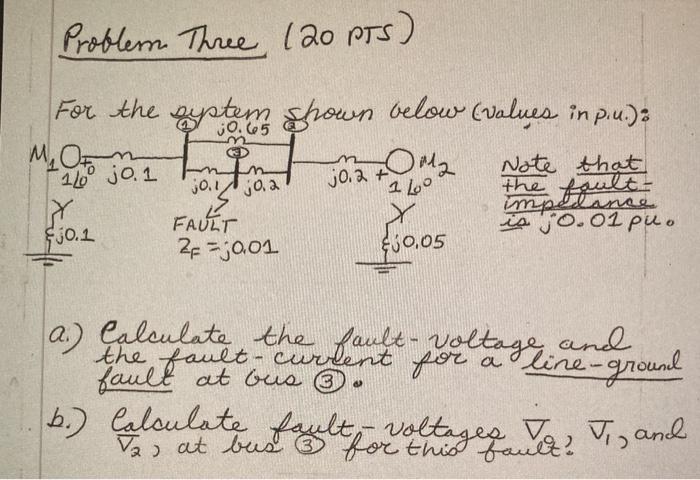 Problem Three (20 PTS)
For the system shown below (values in p.u.):
① j0.65 ②
M1 ③ M2
1∠0° j0.1 j0.1 j0.2 j0.2 + 1∠0°
Note that
the fault-
impedance
is j0.01 pu.
Y Y
j0.1 j0.05
FAULT
ZF = j0.01
a.) Calculate the fault-voltage and
the fault-current for a line-ground
fault at bus ③.
b.) Calculate fault-voltages V0, V1, and
V2, at bus ③ for this fault.